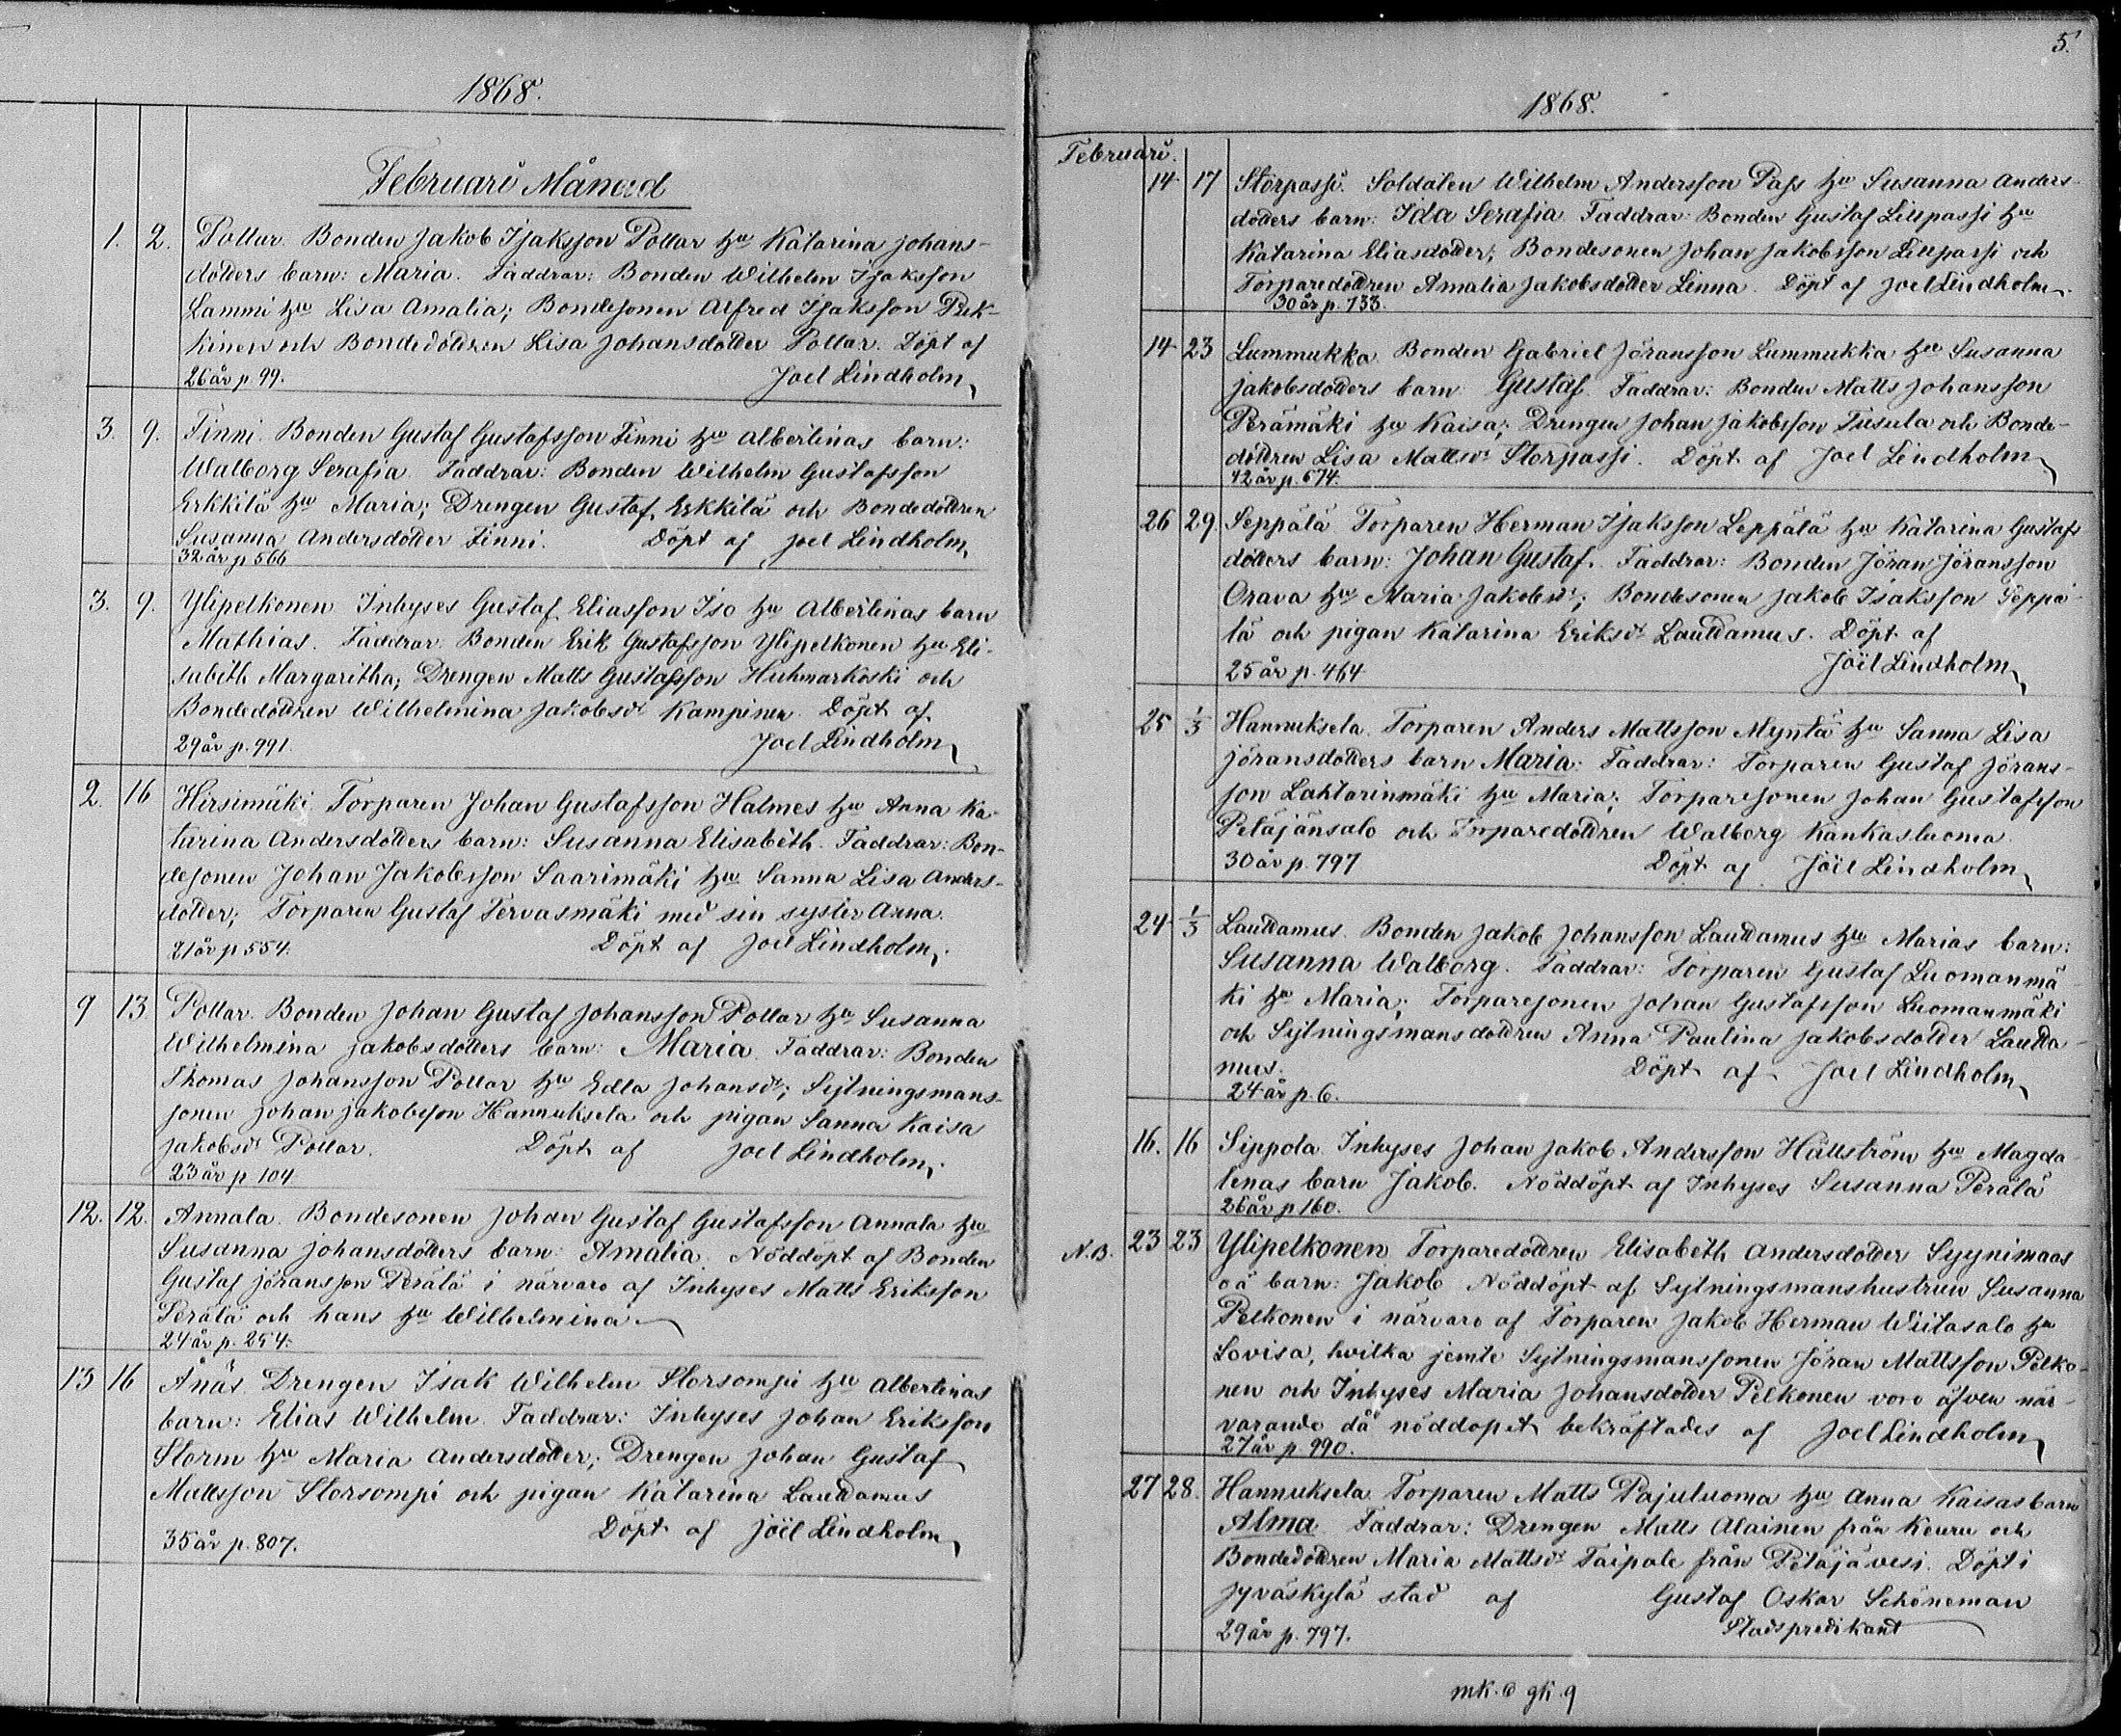 1868.
Februari Månad
1. 2. Pollar. Bonden Jakob Isaksson Pollar hu Katarina Johans-
dotters barn: Maria. Faddrar: Bonden Wilhelm Isaksson
Lammi hu Lisa Amalia; Bondesonen Alfred Isaksson Pek-
kinen och Bondedottren Lisa Johansdotter Pollar. Döpt af
26 år p. 99. Joel Lindholm
3. 9. Finni. Bonden Gustaf Gustafsson Finni hu Albertinas barn:
Walborg Serafia. Faddrar: Bonden Wilhelm Gustafsson
Erkkilä hu Maria; Drengen Gustaf Erkkilä och Bondedottren
Susanna Andersdotter Finni. Döpt af Joel Lindholm
32 år p 566
3. 9. Ylipelkonen Inhyses Gustaf Eliasson Iso hu Albertinas barn
Mathias. Faddrar Bonden Erik Gustafsson Ylipelkonen hu Eli-
sabeth Margaritha; Drengen Matts Gustafsson Huhmarkoski och
Bondedottren Wilhelmina Jakobsdr Kampinen. Döpt af
29 år p. 991. Joel Lindholm
2. 16 Hirsimäki Torparen Johan Gustafsson Halmes hu Anna Ka-
tarina Andersdotters barn: Susanna Elisabeth. Faddrar: Bon-
desonen Johan Jakobsson Saarimäki hu Sanna Lisa Anders-
dotter; Torparen Gustaf Tervasmäki med sin syster Anna.
21 år p 554. Döpt af Joel Lindholm.
9 13 Pollar. Bonden Johan Gustaf Johansson Pollar hu Susanna
Wilhelmina Jakobsdotters barn: Maria. Faddrar: Bonden
Thomas Johansson Pollar hu Edla Johansdr; Sytningsmans-
sonen Johan Jakobsson Hannuksela och pigan Sanna Kaisa
Jakobsdr Pollar. Döpt af Joel Lindholm.
23 år p 104
12. 12. Annala. Bondesonen Johan Gustaf Gustafsson Annala hu
Susanna Johansdotters barn: Amalia. Nöddöpt af Bonden
Gustaf Jöransson Perälä i närvaro af Inhyses Matts Eriksson
Perälä och hans hu Wilhelmina
24 år p. 254.
13 16 Ånäs. Drengen Isak Wilhelm Storsompi hu Albertinas
barn: Elias Wilhelm. Faddrar: Inhyses Johan Eriksson
Storm hu Maria Andersdotter; Drengen Johan Gustaf
Mattsson Storsompi och pigan Katarina Lauttamus
35 år p. 807. Döpt af Joel Lindholm
5.
1868.
Februari.
14 17 Storpassi. Soldaten Wilhelm Andersson Pass hu Susanna Anders-
dotters barn: Ida Serafia Faddrar: Bonden Gustaf Lillpassi hu
Katarina Eliasdotter; Bondesonen Johan Jakobsson Lillpassi och
Torparedottren Amalia Jakobsdotter Linna. Döpt af Joel Lindholm
30 år p. 133.
14 23 Lummukka. Bonden Gabriel Jöransson Lummukka hu Susanna
Jakobsdotters barn Gustaf. Faddrar: Bonden Matts Johansson
Perämäki hu Kaisa; Drengen Johan Jakobsson Tusula och Bonde-
dottren Lisa Mattsdr Storpassi. Döpt af Joel Lindholm
42 år p. 674.
26 29. Seppälä Torparen Herman Isaksson Leppälä hu Katarina Gustafs
dotters barn: Johan Gustaf. Faddrar: Bonden Jöran Jöransson
Orava hu Maria Jakobsdr; Bondesonen Jakob Isaksson Seppä-
lä och pigan Katarina Eriksdr Lauttamus. Döpt af
25 år p. 464 Joël Lindholm
25 1/3 Hannuksela. Torparen Anders Mattsson Myntä hu Sanna Lisa
Jöransdotters barn Maria. Faddrar: Torparen Gustaf Jörans-
son Lahtarinmäki hu Maria; Torparesonen Johan Gustafsson
Petäjänsalo och Torparedottren Walborg Kankasluoma.
30 år p. 797 Döpt af Joël Lindholm
24 1/3 Lauttamus. Bonden Jakob Johansson Lauttamus hu Marias barn:
Susanna Walborg. Faddrar: Torparen Gustaf Luomanmä
ki hu Maria; Torparesonen Johan Gustafsson Luomanmäki
och Sytningsmansdottren Anna Paulina Jakobsdotter Lautta-
mus. Döpt af Joel Lindholm
24 år p. 6.
16. 16 Sippola Inhyses Johan Jakob Andersson Hällström hu Magda-
lenas barn Jakob. Nöddöpt af Inhyses Susanna Perälä
26 år p 160.
N.B. 23 23 Ylipelkonen Torparedottren Elisabeth Andersdotter Syynimaas
oä barn: Jakob Nöddöpt af Sytningsmanshustrun Susanna
Pelkonen i närvaro af Torparen Jakob Herman Wiitasalo hu
Lovisa, hvilka jemte Sytningsmanssonen Jöran Mattsson Pelko-
nen och Inhyses Maria Johansdotter Pelkonen voro äfven när-
varande då nöddopet bekräftades af Joel Lindholm
27 år p. 990.
27 28. Hannuksela Torparen Matts Pajuluoma hu Anna Kaisas barn
Alma Faddrar: Drengen Matts Alainen från Keuru och
Bondedottren Maria Mattsdr Taipale från Petäjävesi. Döpt i
Jyväskylä stad af Gustaf Oskar Schöneman
29 år p. 797. Stadspredikant
mk. 6 gk. 9